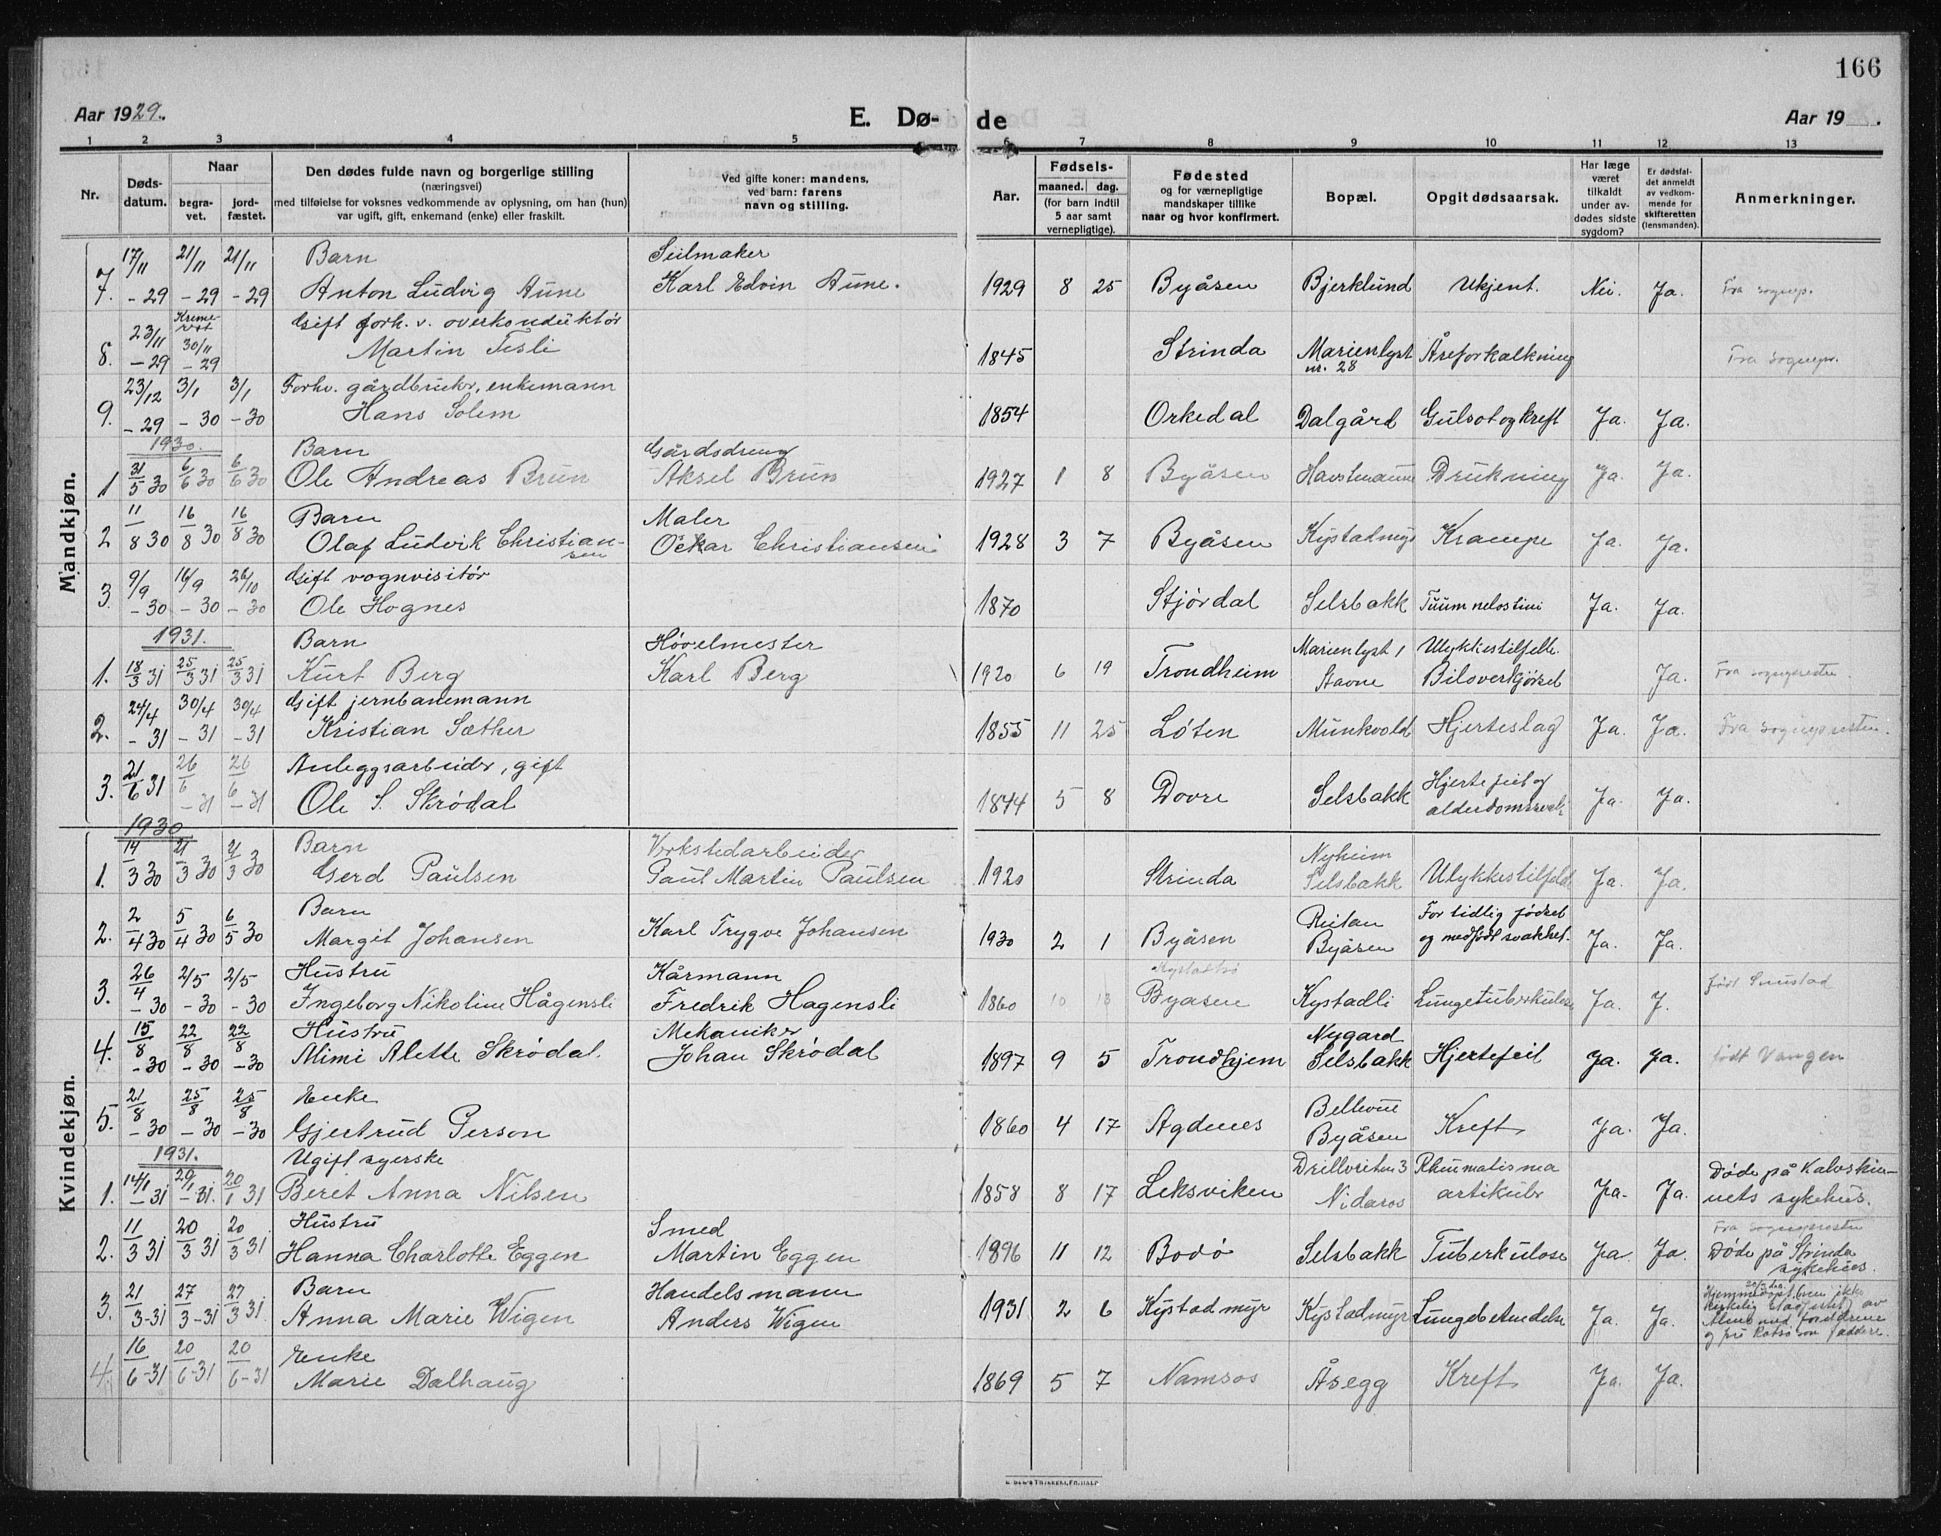 166
Aar 1929.
E. Dø-
de
Aar 19 .
1 2 3 4 5 6 7 8 9 10 11 12 13
Nr.
Døds-
datum.
Naar
begra-
vet.
jord-
fæstet.
Den dødes fulde navn og borgerlige stilling
(næringsvei)
med tilføielse for voksnes vedkommende av oplysning, om han (hun)
var ugift, gift, enkemand (enke) eller fraskilt.
Ved gifte koner: mandens,
ved barn: farens
navn og stilling.
Aar.
Fødsels-
maaned. dag.
(for barn indtil
5 aar samt
vernepligtige).
Fødested
og for værnepligtige
mandskaper tillike
naar og hvor konfirmert.
Bopæl.
Opgit dødsaarsak.
Har læge
været
tilkaldt
under av-
dødes sidste
sygdom?
Er dødsfal-
det anmeldt
av vedkom-
mende for
skifteretten
(lensmanden).
Anmerkninger.
Mandkjøn.
17/11 21/11 21/11 Barn Seilmaker
7. -29 -29 -29 Anton Ludvig Aune Karl Edvin Aune. 1929 8 25 Byåsen Bjerklund Ukjent. Nei. Ja. Fra sognepr.
23/11 Kreme-
rt 30/11 Gift forh. v. overkonduktør
8. -29 -29 Martin Tesli 1845 Strinda Marienlyst nr. 28 Åreforkalkning Fra sognepr.
23/12 3/1 3/1 Forhv. gårdbruker, enkemann
9. -29 -30 -30 Hans Solem 1854 Orkedal Dalgård Gulsot og kreft Ja. Ja.
1930. Barn Gårdsdreng
1 31/5 30 6/6 30 6/6 30 Ole Andreas Brun Aksel Brun 1927 1 8 Byåsen Drukning Ja. Ja.
11 16 16 Barn Maler
2 8 30 8 30 8 30 Olaf Ludvik Christian-
sen Oskar Christiansen 1928 3 7 Byåsen Kystadmyr Krampe Ja. Ja.
9/9 16/9 26/10 Gift vognvisitør
3. -30 -30 -30 Ole Hognes 1870 Stjørdal Selsbakk Ja. Ja.
1931. Barn Høvelmester Marienlyst 1 Ulykkestilfelle
1. 18/3 31 25/3 31 25/3 31 Kurt Berg Karl Berg 1920 6 19 Trondheim Stavne Biloverkjørsel Ja. Fra sognepresten.
24/4 30/4 30/4 Gift jernbanemann
2. -31 -31 -31 Kristian Sæther 1855 11 25 Løten Munkvold Hjerteslag Ja. Ja. Fra sognepresten.
21 26 26 Anleggsarbeider, gift Hjertefeil og
3. 6 31 6 -31 6 -31 Ole S. Skrødal 1844 5 8 Dovre Selsbakk alderdomssvak. Ja. Ja.
Kvindekjøn.
1930
14 21 21 Barn Verkstedarbeider Nyheim
1. 3 30 3 30 3 30 Gerd Paulsen Paul Martin Paulsen 1920 Strinda Selsbakk Ulykkestilfelde Ja. Ja.
2 5 6 Barn Rustan For tidlig fødsel
2. 4 30 4 30 5 30 Margit Johansen Karl Trygve Johansen 1930 2 1 Byåsen Byåsen og medfødt svakhet. Ja. Ja.
26/4 2/5 2/5 Hustru Kårmann født
3. -30 -30 -30 Ingeborg Nikoline Hågensli Fredrik Hagensli 1860 10 13 Byåsen Kystadli Lungetuberkulose Ja. J.
15/8 22/8 22/8 Hustru Mekaniker Nygard
4. -30 -30 -30 Mimi Alette Skrødal. Johan Skrødal 1897 9 5 Trondhjem Selsbakk Hjertefeil Ja. Ja. født Vangen
21/8 25/8 25/8 Enke Bellevue
5. -30 -30 -30 Gjertrud Person 1860 4 17 Agdenes Byåsen Kreft Ja. Ja.
1931. Ugift syerske
14/1 20/1 20 Drillveiten 3 Rheumatisma Døde på Kalvskin-
1. -31 -31. 1 31 Beret Anna Nilsen 1858 8 17 Leksviken Nidaros artikular Ja. Ja. nets sykehus.
11 20 20 Hustru Smed Fra sognepresten
2. 3 31 3 31 3 31 Hanna Charlotte Eggen Martin Eggen 1896 11 12 Bodø Selsbakk Tuberkulose Ja. Ja. Døde på Strinda
sykehus.
21 27 27 Barn Handelsmann
3. 3-31 3-31 3 31 Anna Marie Wigen Anders Wigen 1931 2 6 Kystadmyr Kystadmyr Lungebetendelse Ja. Ja. Hjemmedøpt, men ikke
kirkelig stadfestet, av
med foreldrene
og som faddere.
16 20 20 Enke
4. 6-31 6-31 6-31 Marie Dalhaug 1869 5 7 Namsos Åsegg Kreft Ja. Ja.